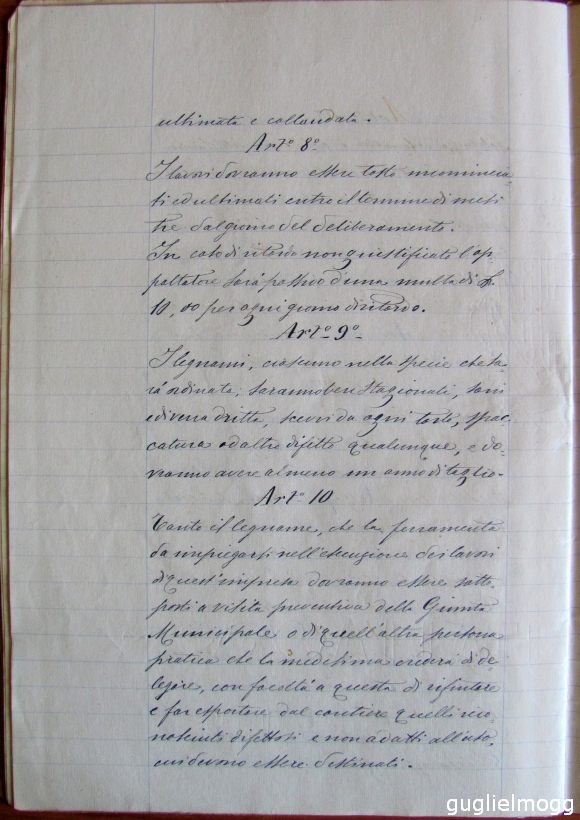 ultimata e collaudata.
Art.° 8°
I lavori dovranno essere tosto incomincia-
ti ed ultimati entro il termine di mesi
tre dal giorno del deliberamento.
In caso di ritardo non giustificato l'ap-
paltatore sarà passivo d'una multa di £
10,00 per ogni giorno di ritardo.
Art.° 9°
I legnami, ciascuno nella specie che sa-
rà ordinata, saranno ben stagionati, sani
e di vena dritta, scevri da ogni torto, spac-
catura od altro difetto qualunque, e do-
vranno avere almeno un anno di taglio.
Art.° 10
Tanto il legname, che la ferramenta
da impiegarsi nell'esecuzione dei lavori
di quest'impresa dovranno essere sotto-
posti a visita preventiva della Giunta
Municipale o di quell'altra persona
pratica che la medesima crederà di de
legare, con facoltà a questa di rifiutare
e far esportare dal cantiere quelli rico-
nosciuti difettosi e non adatti all'uso,
cui devono essere destinati.
guglielmogg